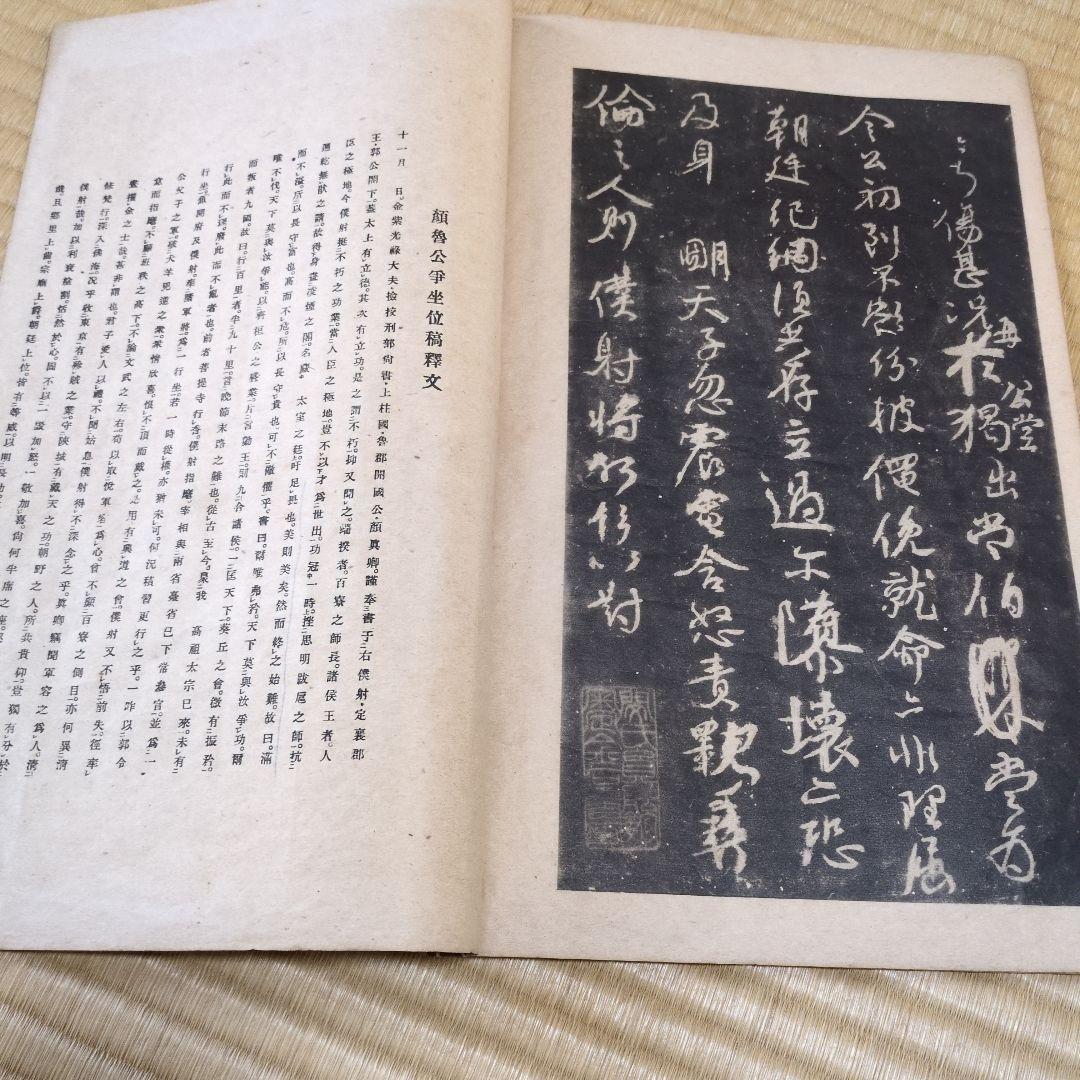 可傷甚況再於公堂獨出常伯當爲
令公初到不欲紛披僶俛就命亦非理屈
朝廷紀綱須共存立過尔隳壞亦恐
及身 明天子忽震電含怒責斁彝
倫之人則僕射將何辭以對
顏魯公爭坐位稿釋文
十一月 日。金紫光祿大夫・檢按刑部尙書・上柱國・魯郡開國公顏眞卿。謹奉書于右僕射・定襄郡
王・郭公閣下。蓋太上有立德。其次有立功。是之謂不朽。抑又聞之。端揆者。百寮之師長。諸侯王者。人
臣之極地。今僕射挺不朽之功業。當人臣之極地。豈不以才爲世出。功冠一時。挫思明跋扈之師。抗
迴紇無猒之請。故得身畫凌煙之閣。名藏 太室之廷。吁足畏也。美則美矣。然而終之始難。故曰。滿
而不溢。所以長守富也。高而不危。所以長守貴也。可不儆懼乎。書曰。爾唯弗矜。天下莫與汝爭功。爾
唯不伐。天下莫與汝爭能。以齊桓公之盛業。片言勤王。則九合諸侯。一匡天下。葵丘之會。微有振矜。
而叛者九國。故曰。行百里者。半九十里。言晚節末路之難也。從古至今。曁我 高祖太宗已來。未有
行此而不理。廢此而不亂者也。前者菩提寺行香。僕射指麾宰相與兩省臺省已下常參官。並爲一
行坐。魚開府及僕射率諸軍將。爲一行坐。若一時從權。亦猶未可。何況積習更行之乎。一昨以郭令
公父子之軍。破犬羊兇逆之衆。衆情欣喜。恨不頂而戴之。是用有興道之會。僕射又不悟前失。徑率
意而指麾。不顧班秩之高下。不論文武之左右。苟以取悅軍容爲心。曾不顧百寮之側目。亦何異淸
晝攫金之士哉。甚非謂也。君子愛人以禮。不聞姑息。僕射得不深念之乎。眞卿竊聞軍容之爲人。淸
修梵行。深入佛海。況乎收東京有殄賊之業。守陝城有戴天之功。朝野之人。所共貴仰。豈獨有分於
僕射哉。加以利衰塗割。恬然於心。固不以一毀加怒。一敬加喜。尙何半席之座。
哉。且鄕里上齒。宗廟上爵。朝廷上位。皆有等威。以明